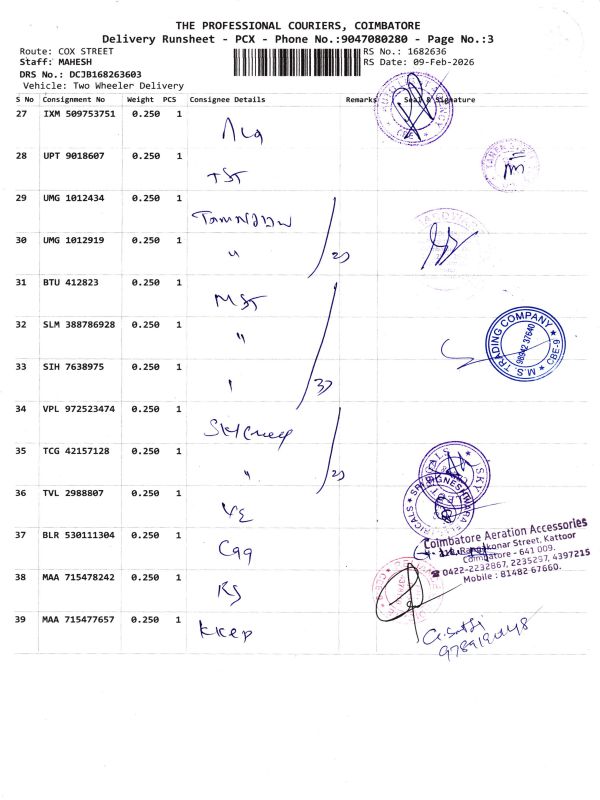 THE PROFESSIONAL COURIERS, COIMBATORE
Delivery Runsheet - PCX - Phone No.:9047080280 - Page No.:3
Route: COX STREET
RS No.: 1682636
Staff: MAHESH
RS Date: 09-Feb-2026
DRS No.: DCJB168263603
Vehicle: Two Wheeler Delivery
S No Consignment No Weight PCS Consignee Details Remarks Seal & Signature
27 IXM 509753751 0.250 1
28 UPT 9018607 0.250 1
TST
29 UMG 1012434 0.250 1
30 UMG 1012919 0.250 1
"
31 BTU 412823 0.250 1
MST
32 SLM 388786928 0.250 1
"
M.S. TRADING COMPANY
98942 37640
CBE-9
33 SIH 7638975 0.250 1
34 VPL 972523474 0.250 1
35 TCG 42157128 0.250 1
"
SKY
36 TVL 2988807 0.250 1
VE
37 BLR 530111304 0.250 1
Coimbatore Aeration Accessories
Street, Kattoor
Coimbatore - 641 009.
☎ 0422-2232867, 2235297, 4397215
Mobile : 81482 67660.
38 MAA 715478242 0.250 1
RS
39 MAA 715477657 0.250 1